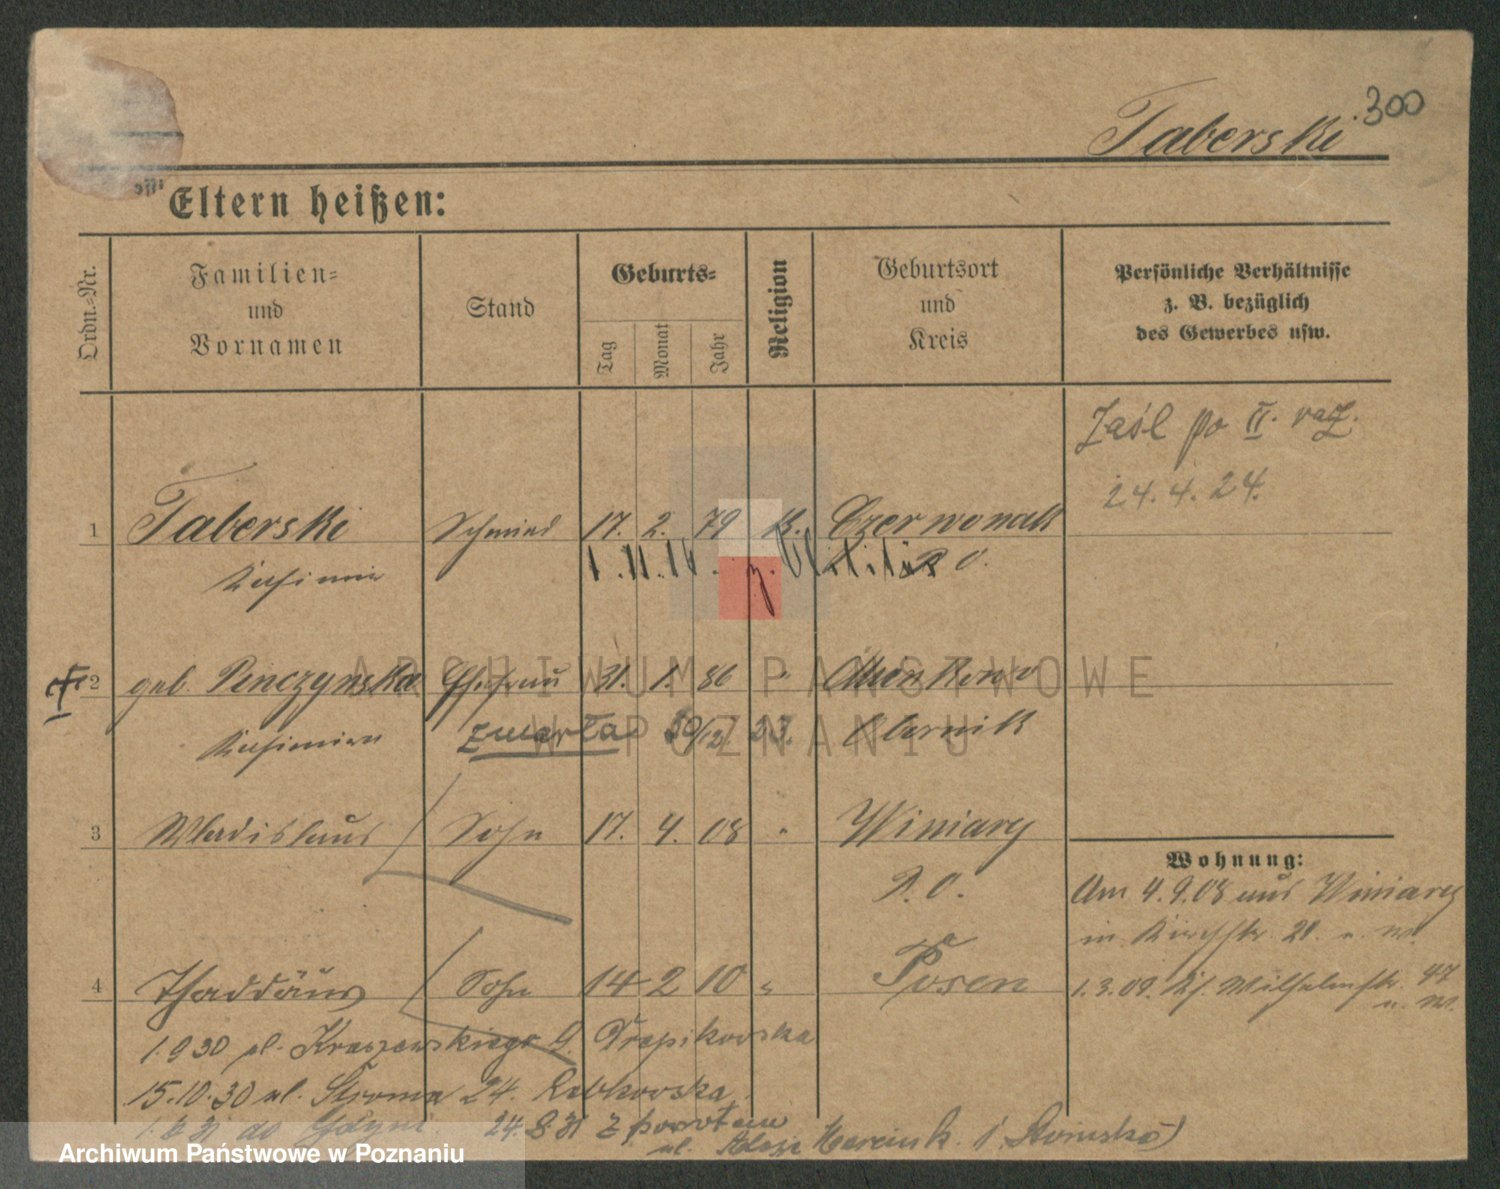 300
Taberski
Eltern heißen:
Ordn.-Nr.
Familien- und Vornamen
Stand
Geburts-
Tag
Monat
Jahr
Religion
Geburtsort und Kreis
Persönliche Verhältnisse
z. B. bezüglich
des Gewerbes usw.
Zaśl po II. raz.
24.4.24.
1 Taberski Schmied 17. 2. 79 k. Czerwonak
Kasimir P. O.
1.11.10. z. Militär
2 geb. Penczynska Ehefrau 31. 1. 86 "
Kasimira zmarła 30/12 23. Obornik
3 Wladislaus Sohn 17. 4. 08 " Winiary
P. O.
Wohnung:
Am 4.9.08 aus Winiary
in Kirchstr. 21. u. W.
4 Thaddäus Sohn 14 2 10 " Posen
1.3.09. Wilhelmstr. 47
u. W.
1.9 30 ul. Kraszewskiego 9
15.10.30 ul. Stroma 24.
do Gdyni 24.8.31 z powrotem
ul. Marcink.
ARCHIWUM PAŃSTWOWE
W POZNANIU
Archiwum Państwowe w Poznaniu